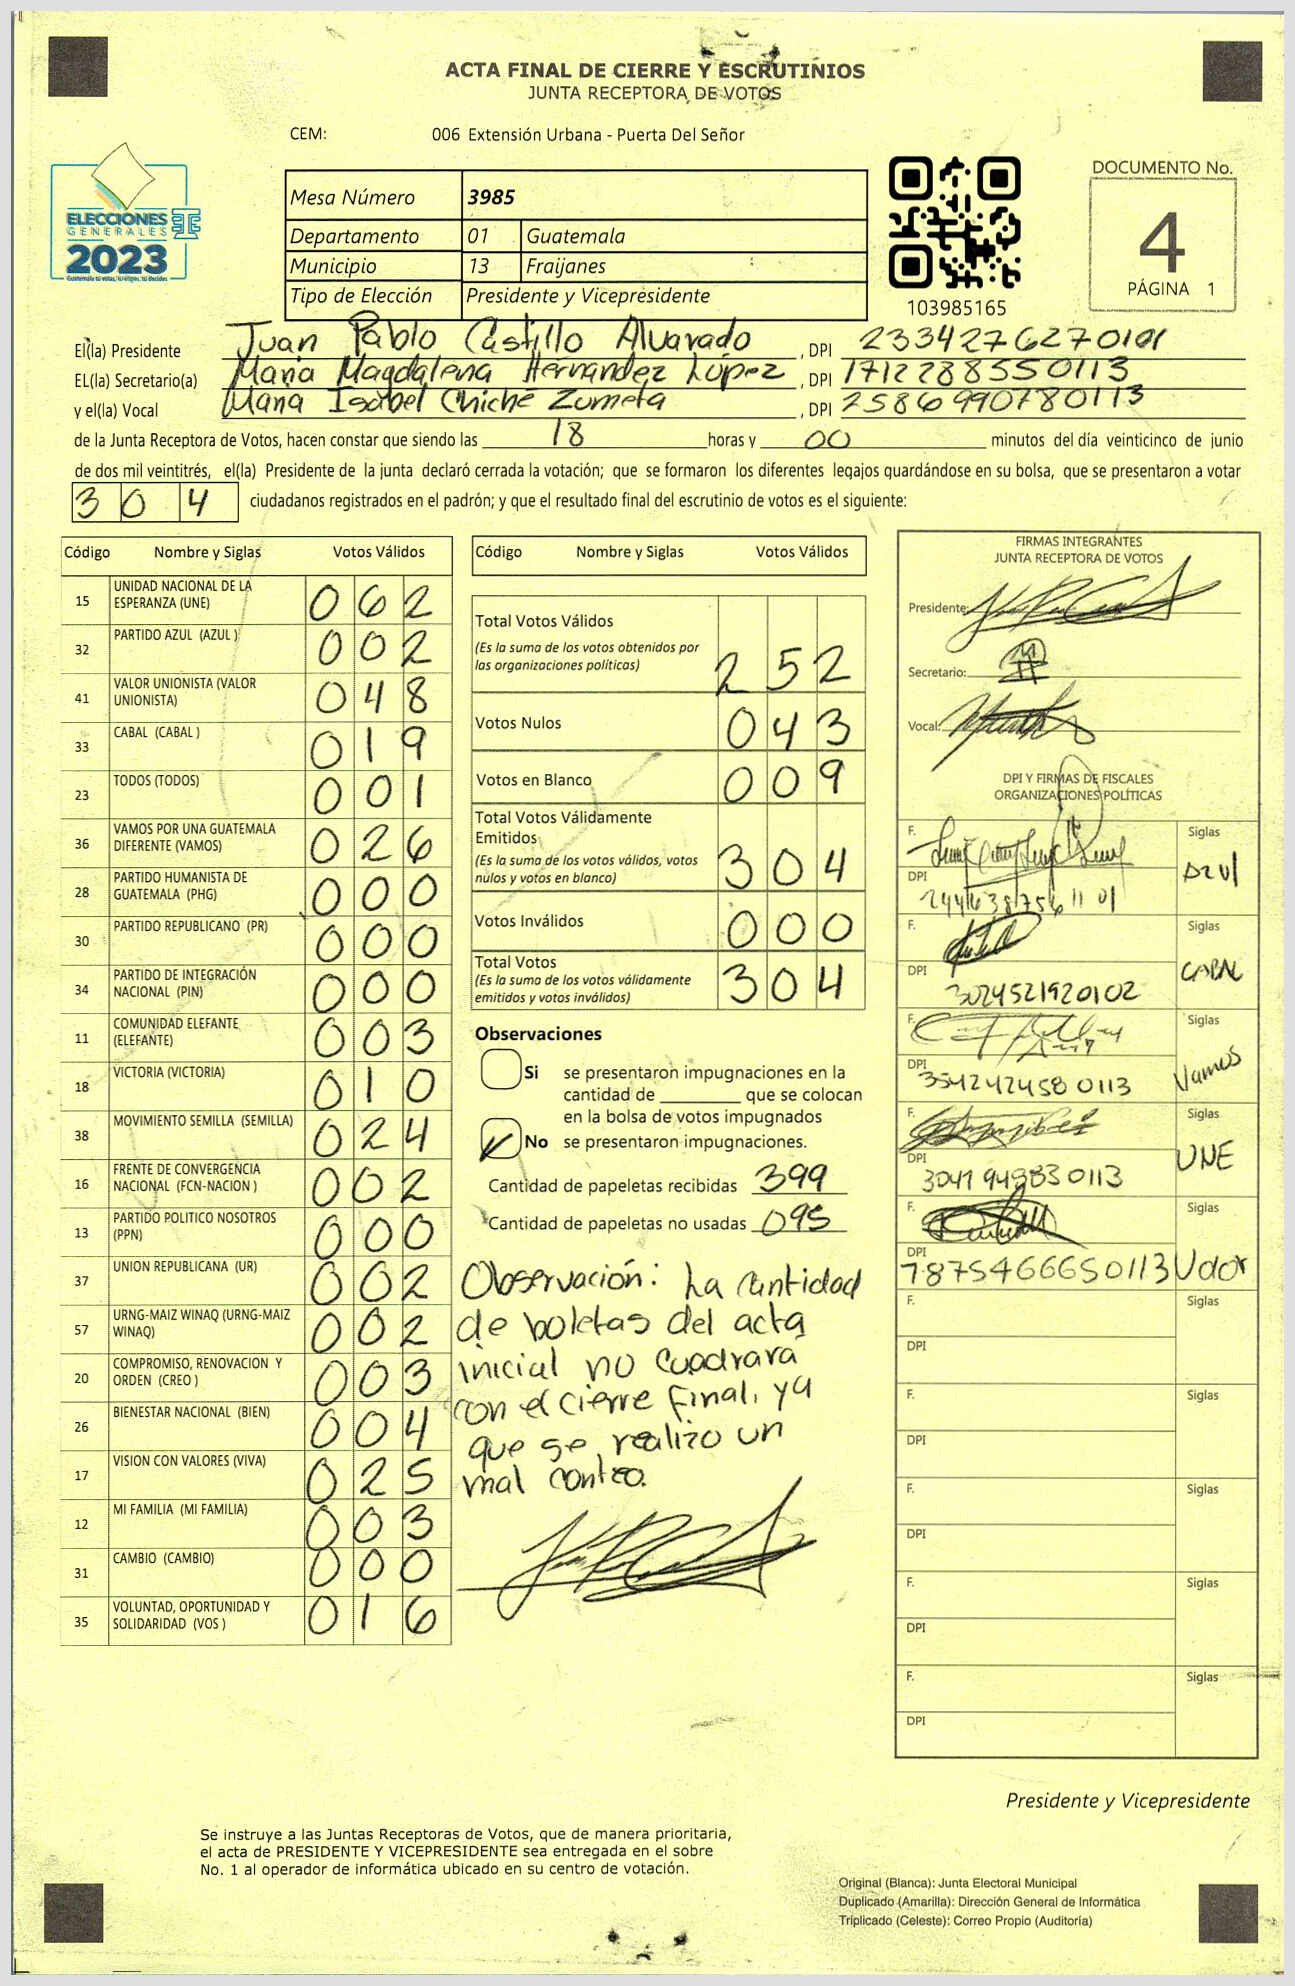 ACTA FINAL DE CIERRE Y ESCRUTINIOS
JUNTA RECEPTORA DE VOTOS
CEM: 006 Extensión Urbana - Puerta Del Señor
ELECCIONES
GENERALES
2023
Guatemala tú votas, tú eliges, tú decides
Mesa Número 3985
Departamento 01 Guatemala
Municipio 13 Fraijanes
Tipo de Elección Presidente y Vicepresidente
103985165
DOCUMENTO No.
4
PÁGINA 1
El(la) Presidente Juan Pablo Castillo Alvarado, DPI 2334276270101
EL(la) Secretario(a) Maria Magdalena Hernández López, DPI 1712288550113
y el(la) Vocal Maria Isabel Chiché Zumeta, DPI 2586990780113
de la Junta Receptora de Votos, hacen constar que siendo las 18 horas y 00 minutos del día veinticinco de junio
de dos mil veintitrés, el(la) Presidente de la junta declaró cerrada la votación; que se formaron los diferentes legajos guardándose en su bolsa, que se presentaron a votar
304 ciudadanos registrados en el padrón; y que el resultado final del escrutinio de votos es el siguiente:
Código Nombre y Siglas Votos Válidos
15 UNIDAD NACIONAL DE LA ESPERANZA (UNE) 062
32 PARTIDO AZUL (AZUL ) 002
41 VALOR UNIONISTA (VALOR UNIONISTA) 048
33 CABAL (CABAL ) 019
23 TODOS (TODOS) 001
36 VAMOS POR UNA GUATEMALA DIFERENTE (VAMOS) 026
28 PARTIDO HUMANISTA DE GUATEMALA (PHG) 000
30 PARTIDO REPUBLICANO (PR) 000
34 PARTIDO DE INTEGRACIÓN NACIONAL (PIN) 000
11 COMUNIDAD ELEFANTE (ELEFANTE) 003
18 VICTORIA (VICTORIA) 010
38 MOVIMIENTO SEMILLA (SEMILLA) 024
16 FRENTE DE CONVERGENCIA NACIONAL (FCN-NACION ) 002
13 PARTIDO POLITICO NOSOTROS (PPN) 000
37 UNION REPUBLICANA (UR) 002
57 URNG-MAIZ WINAQ (URNG-MAIZ WINAQ) 002
20 COMPROMISO, RENOVACION Y ORDEN (CREO ) 003
26 BIENESTAR NACIONAL (BIEN) 004
17 VISION CON VALORES (VIVA) 025
12 MI FAMILIA (MI FAMILIA) 003
31 CAMBIO (CAMBIO) 000
35 VOLUNTAD, OPORTUNIDAD Y SOLIDARIDAD (VOS ) 016
Código Nombre y Siglas Votos Válidos
Total Votos Válidos 252
(Es la suma de los votos obtenidos por
las organizaciones políticas)
Votos Nulos 043
Votos en Blanco 009
Total Votos Válidamente
Emitidos 304
(Es la suma de los votos válidos, votos
nulos y votos en blanco)
Votos Inválidos 000
Total Votos 304
(Es la suma de los votos válidamente
emitidos y votos inválidos)
Observaciones
Si se presentaron impugnaciones en la
cantidad de ________ que se colocan
en la bolsa de votos impugnados
No se presentaron impugnaciones.
Cantidad de papeletas recibidas 399
Cantidad de papeletas no usadas 095
Observación: La cantidad
de boletas del acta
inicial no cuadrara
con el cierre final, ya
que se realizo un
mal conteo.
FIRMAS INTEGRANTES
JUNTA RECEPTORA DE VOTOS
Presidente:
Secretario:
Vocal:
DPI Y FIRMAS DE FISCALES
ORGANIZACIONES POLÍTICAS
F. Siglas
DPI Azul
F. Siglas
DPI 3024521920102 CABAL
F. Siglas
DPI 3542424580113 Vamos
F. Siglas
DPI UNE
F. Siglas
DPI 7875466650113
F. Siglas
DPI
F. Siglas
DPI
F. Siglas
DPI
F. Siglas
DPI
F. Siglas
DPI
Presidente y Vicepresidente
Se instruye a las Juntas Receptoras de Votos, que de manera prioritaria,
el acta de PRESIDENTE Y VICEPRESIDENTE sea entregada en el sobre
No. 1 al operador de informática ubicado en su centro de votación.
Original (Blanca): Junta Electoral Municipal
Duplicado (Amarilla): Dirección General de Informática
Triplicado (Celeste): Correo Propio (Auditoría)